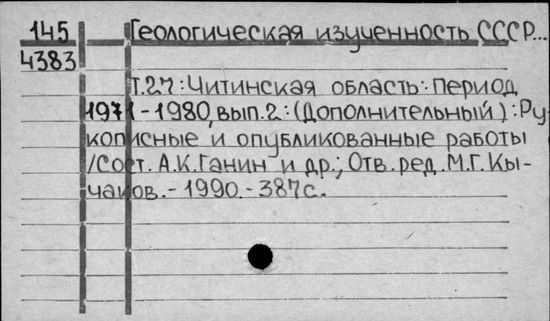 145 Геологическая изученность СССР...
4383
Т.27: Читинская область: Период
1971-1980, вып.2: (Дополнительный): Ру-
кописные и опубликованные работы
/Сост. А.К.Ганин и др.; Отв. ред. М.Г. Кы-
чаков. - 1990. - 387с.